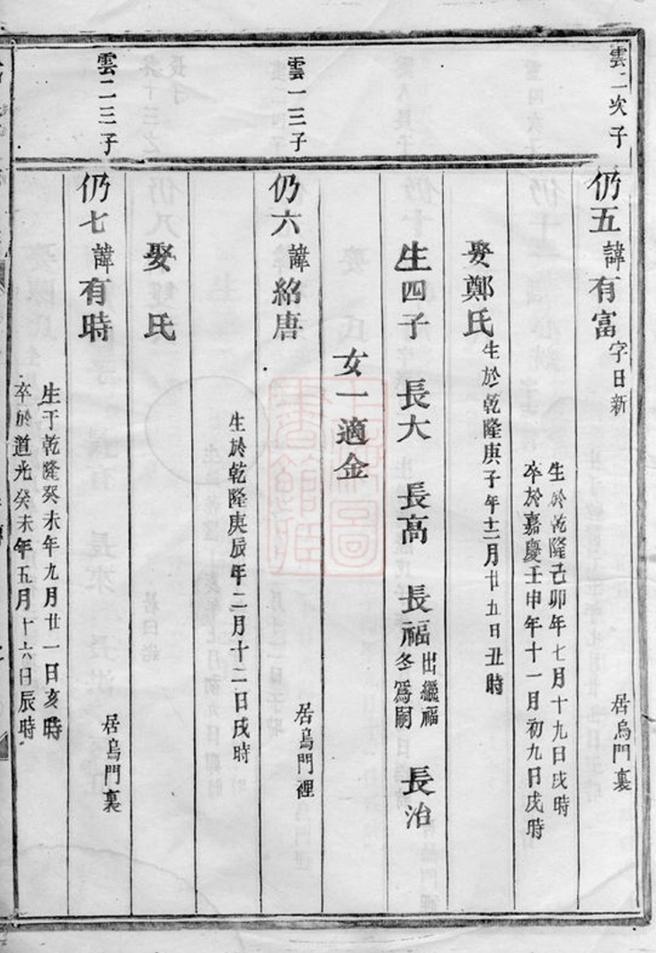 雲二次子
仍五諱有富字日新 居烏門裏
生於乾隆己卯年七月十九日戌時
卒於嘉慶壬申年十一月初九日戌時
娶鄭氏生於乾隆庚子年十二月廿五日丑時
生四子 長大 長高 長福出繼福冬爲嗣 長治
女一適金
雲一三子
仍六諱紹唐 居烏門裡
生於乾隆庚辰年二月十二日戌時
娶氏
雲二三子
仍七諱有時 居烏門裏
生于乾隆癸未年九月廿一日亥時
卒於道光癸未年五月十六日辰時